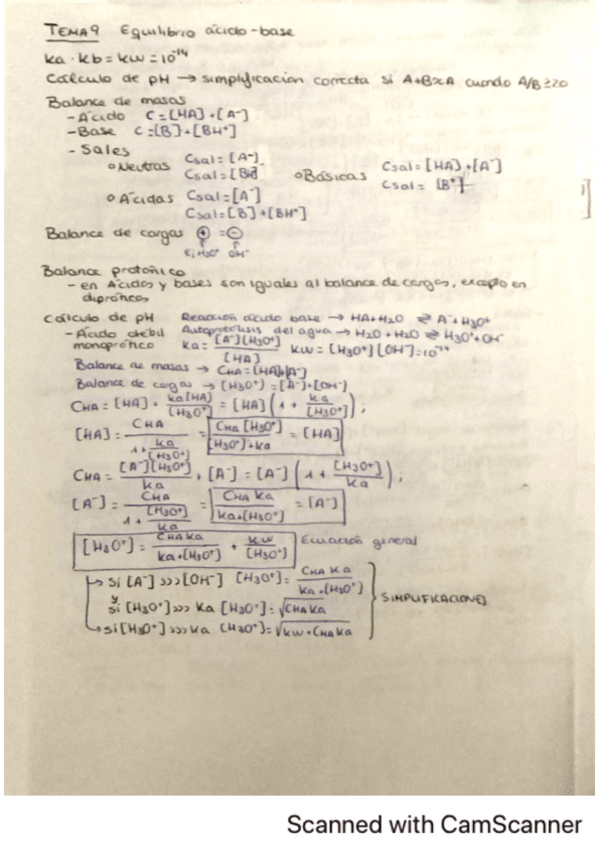 TEMA 9 Equilibrio ácido-base
ka · kb = kw = 10⁻¹⁴
Cálculo de pH → simplificación correcta si A+B≈A cuando A/B ≥ 20
Balance de masas
- Ácido C = [HA] + [A⁻]
- Base C = [B] + [BH⁺]
- Sales
○ Neutras Csal = [A⁻]
Csal = [B⁺]
○ Básicas Csal = [HA] + [A⁻]
Csal = [B⁺]
○ Ácidas Csal = [A⁻]
Csal = [B] + [BH⁺]
Balance de cargas ⊕ = ⊖
H₃O⁺ OH⁻
Balance protónico
- en Ácidos y bases son iguales al balance de cargas, excepto en
dipróticos
Cálculo de pH Reacción ácido base → HA + H₂O ⇌ A⁻ + H₃O⁺
- Ácido débil Autoprotólisis del agua → H₂O + H₂O ⇌ H₃O⁺ + OH⁻
monoprótico ka = [A⁻][H₃O⁺] / [HA] kw = [H₃O⁺][OH⁻] = 10⁻¹⁴
Balance de masas → CHA = [HA] + [A⁻]
Balance de cargas → [H₃O⁺] = [A⁻] + [OH⁻]
CHA = [HA] + ka[HA] / [H₃O⁺] = [HA] (1 + ka / [H₃O⁺]);
[HA] = CHA / (1 + ka / [H₃O⁺]) = CHA [H₃O⁺] / ([H₃O⁺] + ka) = [HA]
CHA = [A⁻][H₃O⁺] / ka + [A⁻] = [A⁻] (1 + [H₃O⁺] / ka);
[A⁻] = CHA / (1 + [H₃O⁺] / ka) = CHA ka / (ka + [H₃O⁺]) = [A⁻]
[H₃O⁺] = CHA ka / (ka + [H₃O⁺]) + kw / [H₃O⁺] Ecuación general
↳ si [A⁻] >>> [OH⁻] [H₃O⁺] = CHA ka / (ka + [H₃O⁺])
y
si [H₃O⁺] >>> ka [H₃O⁺] = √CHA ka
↳ si [H₃O⁺] >>> ka [H₃O⁺] = √kw + CHA ka
SIMPLIFICACIONES
Scanned with CamScanner